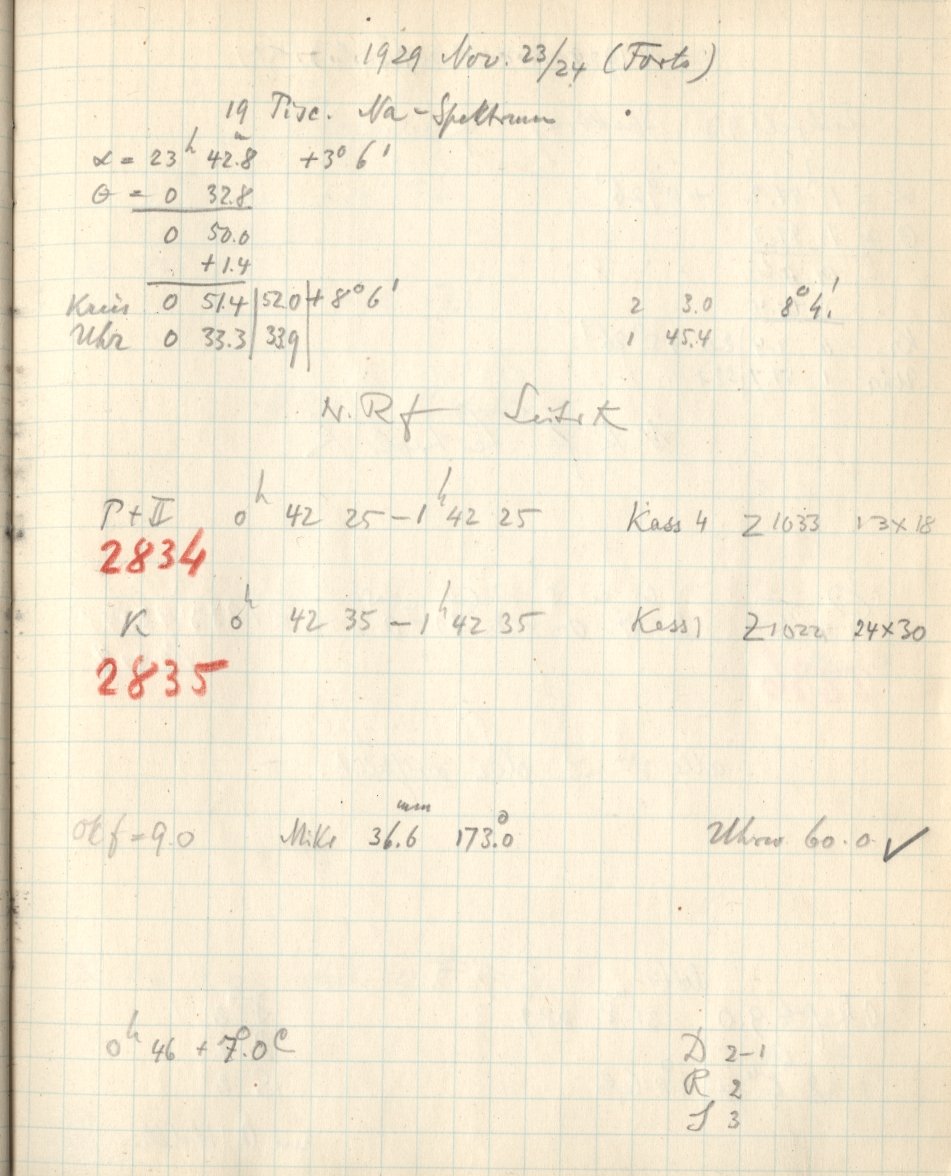 1929 Nov. 23/24 (Forts)
19 Pisc. Na-Spektrum
α = 23h 42.8m +3° 6'
θ = 0 32.8
0 50.0
+1.4
Kreis 0 51.4 | 52.0 | +8° 6' 2 3.0 8° 4!
Uhr 0 33.3 | 33.9 | 1 45.4
N. Rf
P+II 0h 42 25 – 1h 42 25 Kass 4 Z1033 13×18
2834
K 0h 42 35 – 1h 42 35 Kass 1 Z1022 24×30
2835
Okf = 9.0 Mikr 36.6mm 173.0° Uhrw 60.0 ✓
0h 46 + 7.0 C
D 2-1
R 2
S 3